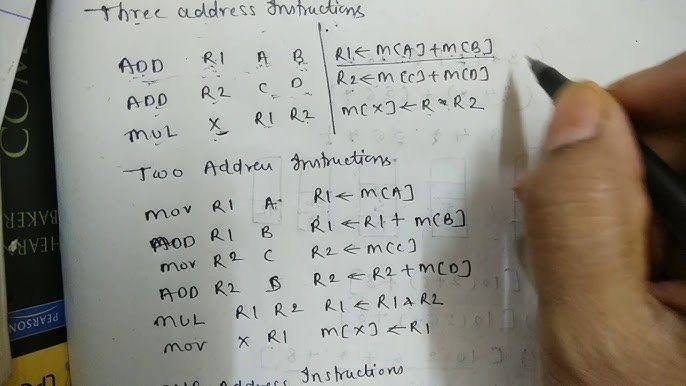 Three address Instructions
ADD R1 A B R1 ← M[A] + M[B]
ADD R2 C D R2 ← M[C] + M[D]
MUL X R1 R2 M[X] ← R * R2
Two Address Instructions
MOV R1 A R1 ← M[A]
ADD R1 B R1 ← R1 + M[B]
MOV R2 C R2 ← M[C]
ADD R2 D R2 ← R2 + M[D]
MUL R1 R2 R1 ← R1 * R2
MOV X R1 M[X] ← R1
Address Instructions
COM
HEAR
BAKER
PEARSON